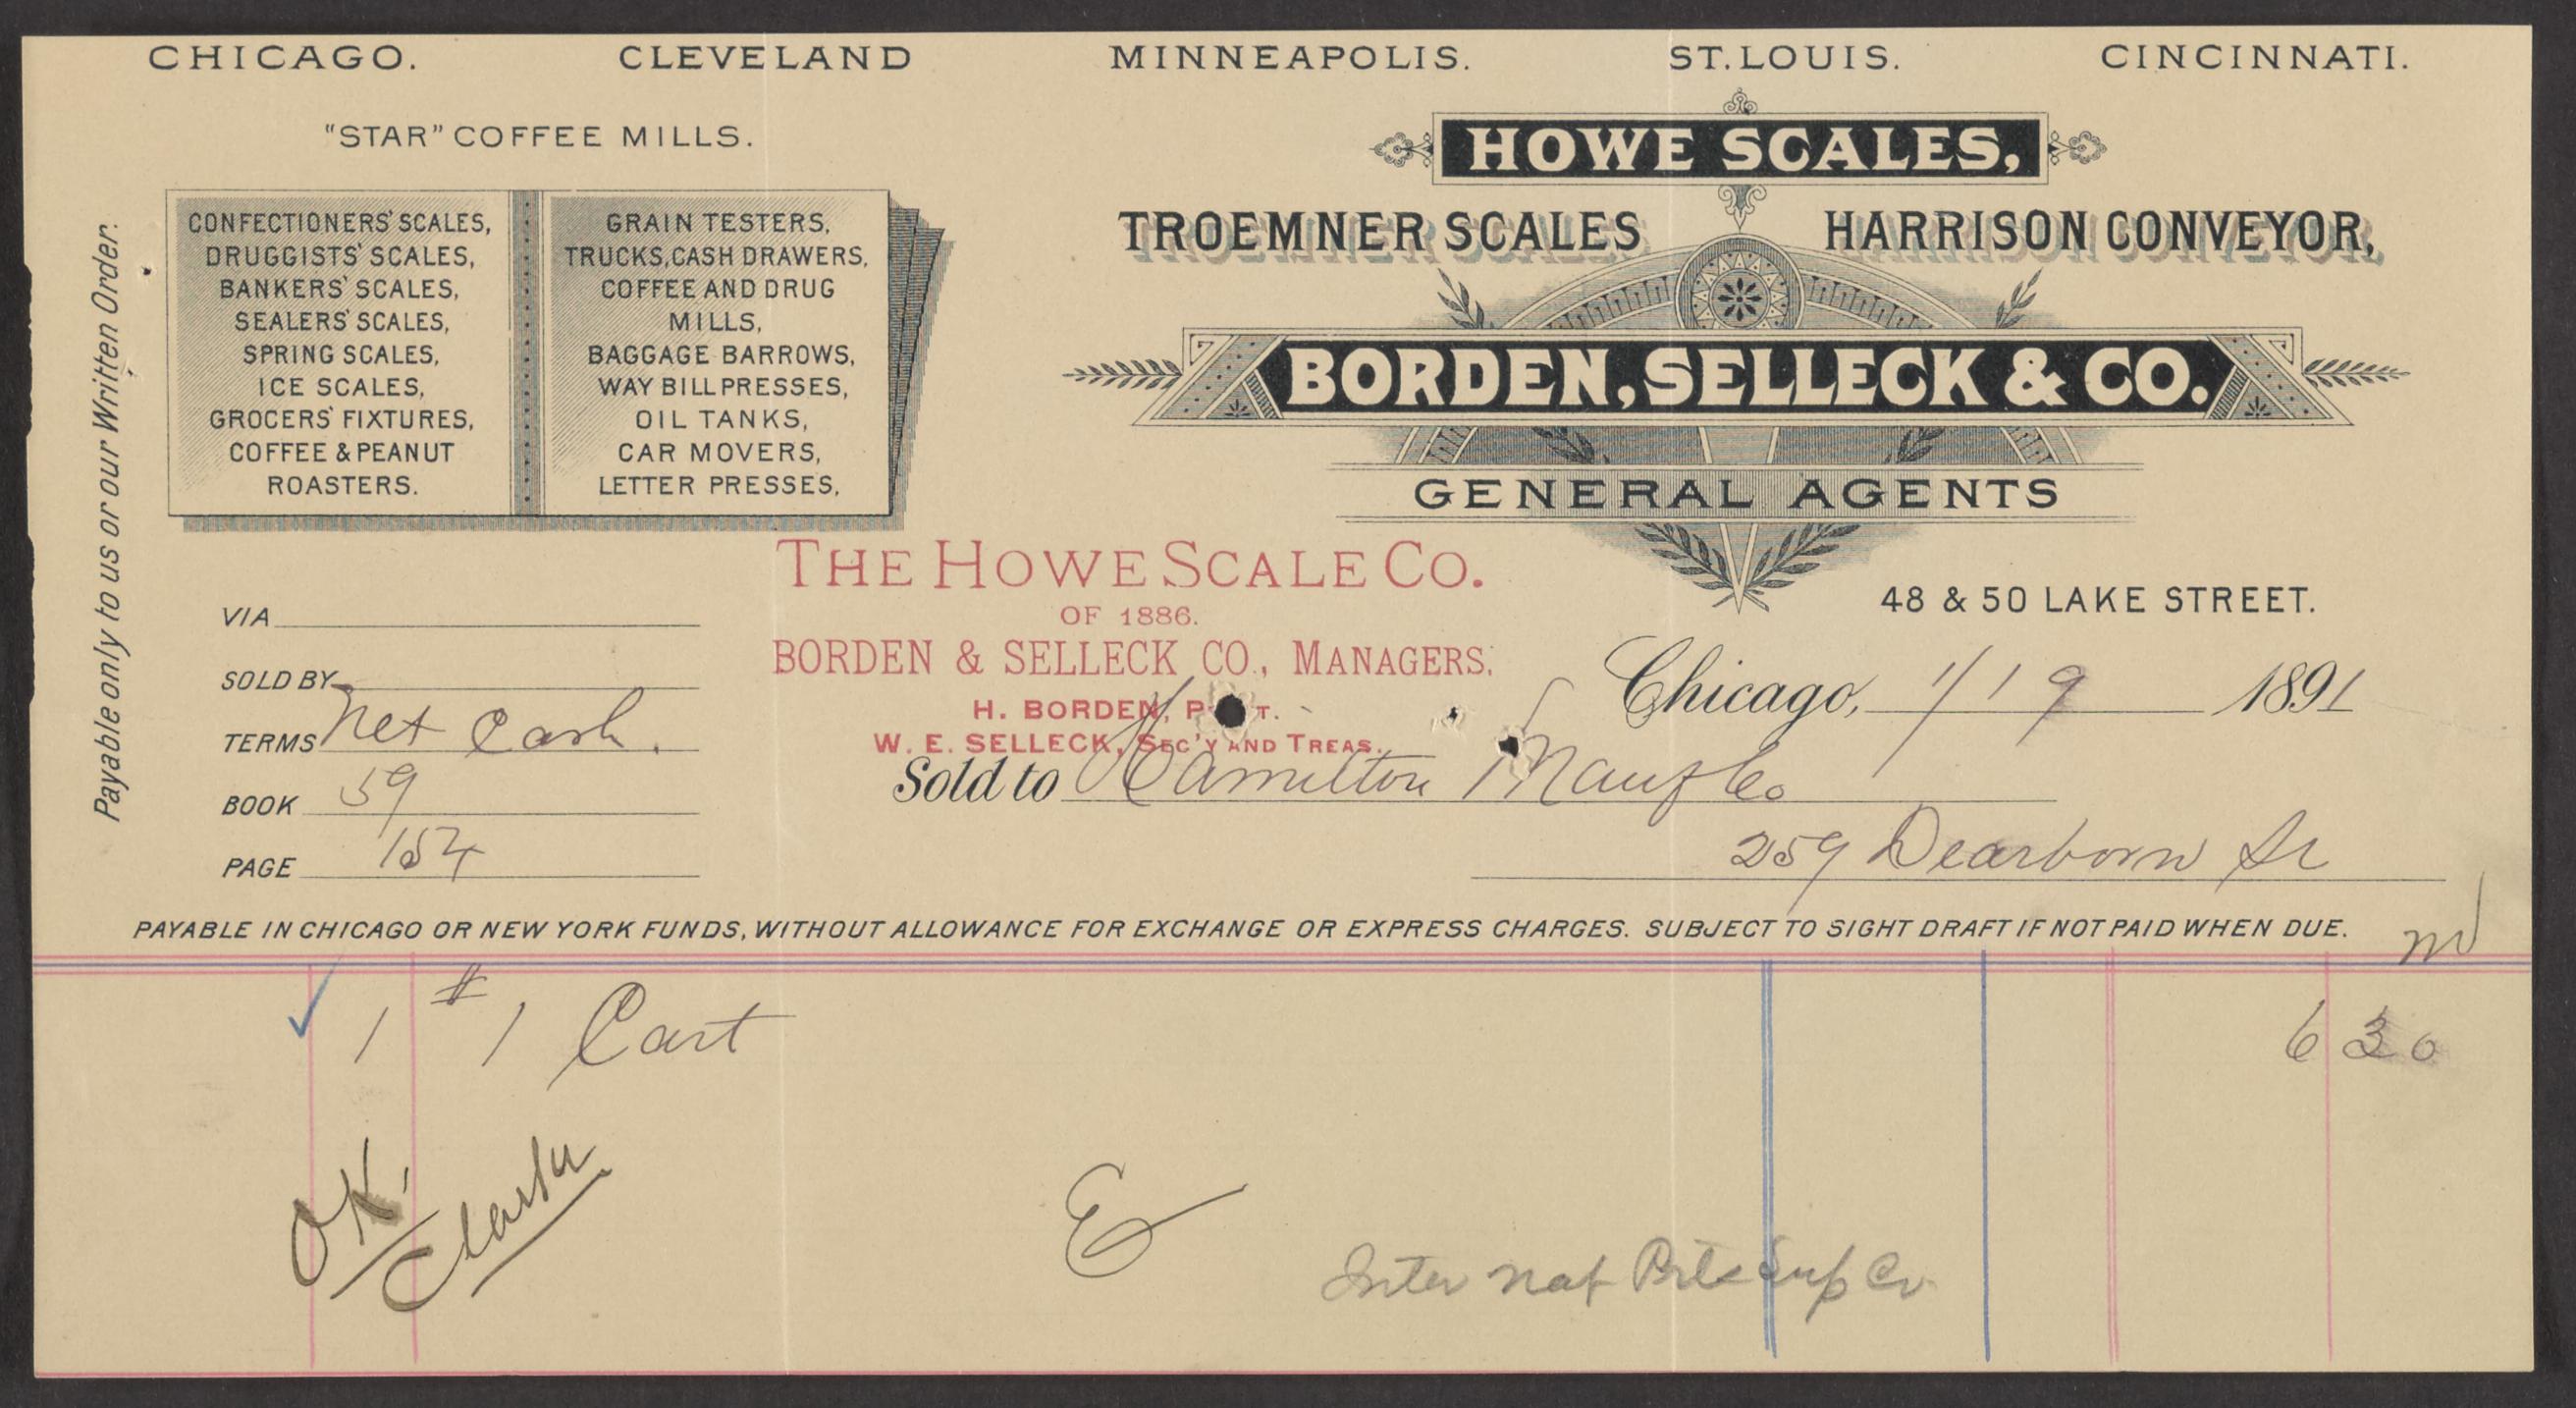 CHICAGO. CLEVELAND MINNEAPOLIS. ST. LOUIS. CINCINNATI.
"STAR" COFFEE MILLS.
CONFECTIONERS' SCALES,
DRUGGISTS' SCALES,
BANKERS' SCALES,
SEALERS' SCALES,
SPRING SCALES,
ICE SCALES,
GROCERS' FIXTURES,
COFFEE & PEANUT
ROASTERS.
GRAIN TESTERS,
TRUCKS, CASH DRAWERS,
COFFEE AND DRUG
MILLS,
BAGGAGE BARROWS,
WAY BILL PRESSES,
OIL TANKS,
CAR MOVERS,
LETTER PRESSES,
HOWE SCALES,
TROEMNER SCALES HARRISON CONVEYOR,
BORDEN, SELLECK & CO.
GENERAL AGENTS
48 & 50 LAKE STREET.
Payable only to us or our Written Order.
THE HOWE SCALE CO.
OF 1886.
BORDEN & SELLECK CO., MANAGERS.
H. BORDEN,
W. E. SELLECK, SEC'Y AND TREAS.
VIA
SOLD BY
TERMS Net Cash.
BOOK 59
PAGE 154
Chicago, 1/19 1891
Sold to Hamilton Manuf Co
259 Dearborn St
PAYABLE IN CHICAGO OR NEW YORK FUNDS, WITHOUT ALLOWANCE FOR EXCHANGE OR EXPRESS CHARGES. SUBJECT TO SIGHT DRAFT IF NOT PAID WHEN DUE.
1 #1 Cart 6 30
OK.
E
Inter Nat Sup Co